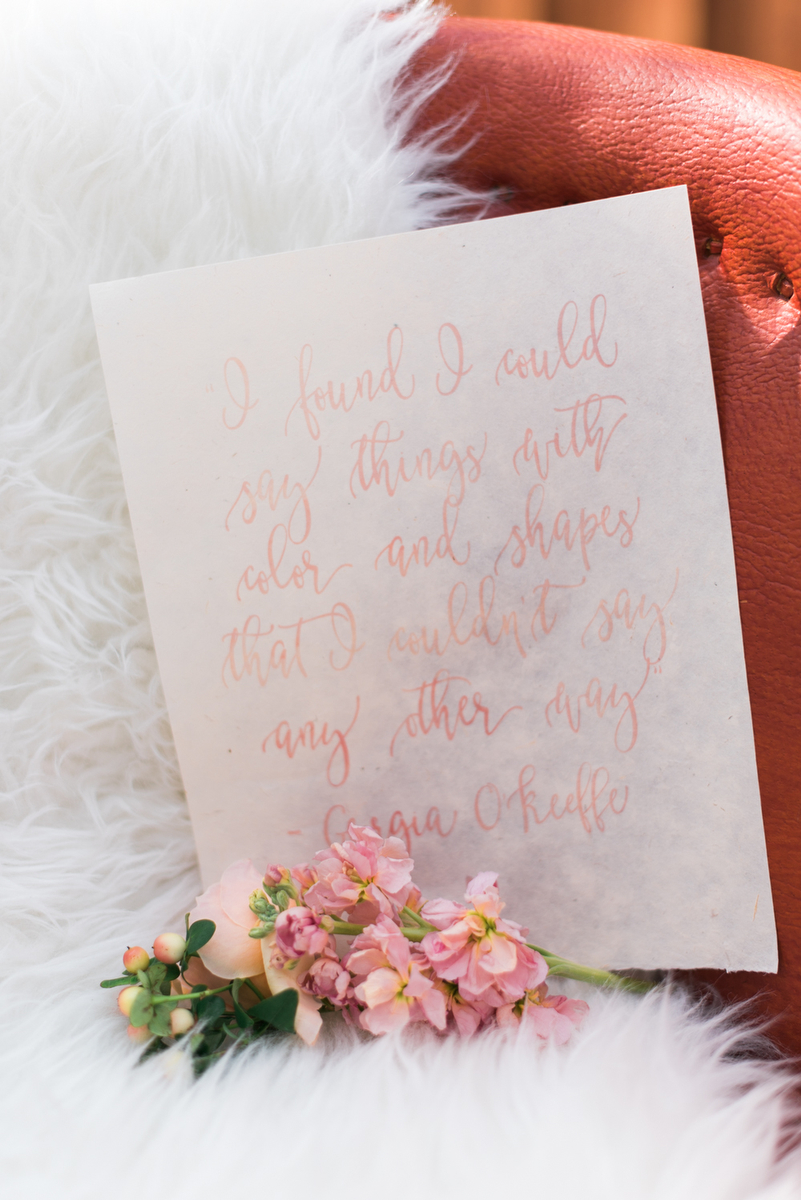 "I found I could
say things with
color and shapes
that I couldn't say
any other way"
- Gorgia O'Keeffe